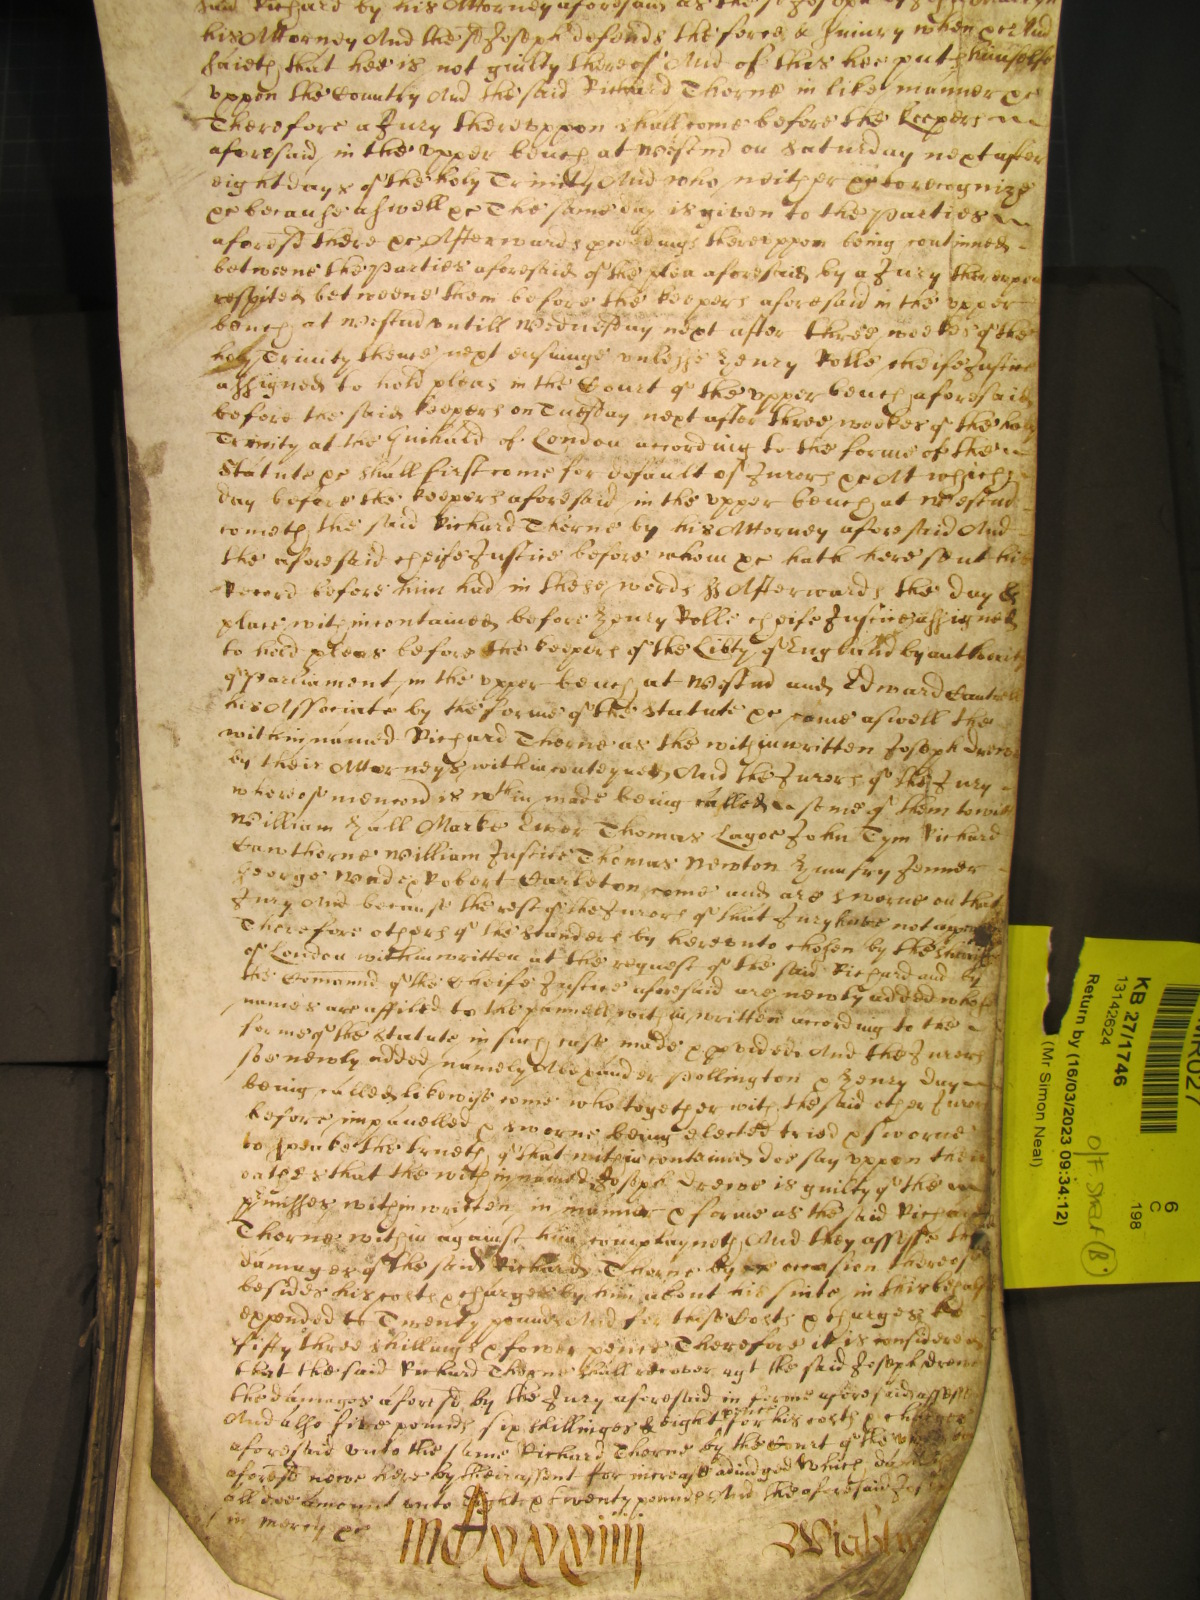 said Richard by his Attorney aforesaid as the sd Joseph by
his Attorney And the sd Joseph defends the force & Iniury when &c And
saieth that hee is not guilty thereof And of this hee putteth himselfe
vppon the Country And the said Richard Thorne in like manner &c
Therefore a Jury therevppon shall come before the keepers
aforesaid in the vpper bench at Westmr on Saturday next after
eight dayes of the holy Trinity And who neither &c to recognize
&c because aswell &c The same day is given to the Parties
aforesd there &c Afterwards proceedings therevppon being continued
betweene the Parties aforesaid of the plea aforesaid by a Jury therevppon
respited betweene them before the keepers aforesaid in the vpper
bench at Westmr vntill Wednesday next after three weekes of the
holy Trinity thence next ensuinge vnlesse Henry Rolle cheife Justice
assigned to hold pleas in the Court of the vpper bench aforesaid
before the said keepers on Tuesday next after three weekes of the holy
Trinity at the Guihald of London according to the forme of the
Statute &c shall first come for default of Jurors &c At which
day before the keepers aforesaid in the vpper bench at Westmr
cometh the said Richard Thorne by his Attorney aforesaid And
the aforesaid cheife Justice before whom &c hath here sent his
Record before him had in these words ss Afterwards the day &
place within contained before Henry Rolle cheife Justice assigned
to hold pleas before the keepers of the Libty of England by authority
of Parliament in the vpper bench at Westmr and Edward
his Associate by the forme of the statute &c came aswell the
within named Richard Thorne as the within written Joseph Drewe
by their Attorneys within conteyned And the Jurors of the Jury
whereof mencon is wthin made being called some of them to witt
William Hall Marke Thomas Lagoe John Tym Richard
Cawthorne William Justice Thomas Newton Humfry Jenner
George Robert Carleton come and are sworne on that
Jury And because the rest of the Jurors of that Jury have not appeared
Therefore others of the standers by herevnto chosen by the Sheriffs
of London within written at the request of the said Richard and by
the Comannd of the Cheife Justice aforesaid are newly added whose
names are affiled to the pannell within written according to the
forme of the statute in such case made & provided And the Jurors
soe newly added namely Alexander Pollington & Henry Day
being called likewise come who together with the said other Jurors
before impanelled & sworne being elected tried & sworne
to speake the trueth of that within contained doe say vppon their
oathes that the within named Joseph Drewe is guilty of the
p'misses within written in manner & forme as the said Richard
Thorne within against him complayneth And they assesse the
damages of the said Richard Thorne by occasion thereof
besides his costs & charges by him about his suite in this behalfe
expended to Twenty pounds And for those Costs & charges to
fifty three shillings & fower pence Therefore it is considered
that the said Richard Thorne shall recover agt the said Joseph Drewe
the damages aforesd by the Jury aforesaid in forme aforesaid assessed
And alsoe five pounds six shillinges & eight pence for his costs & charges
aforesaid vnto the same Richard Thorne by the Court of the vpper
aforesd nowe here by their assent for increase adiudged Which damages
all doe amount vnto Eight & twenty pounds And the aforesaid Joseph
in mercy &c
KB 27/1746
13142624
Return by (16/03/2023 09:34:12)
(Mr Simon Neal)
6
C
198